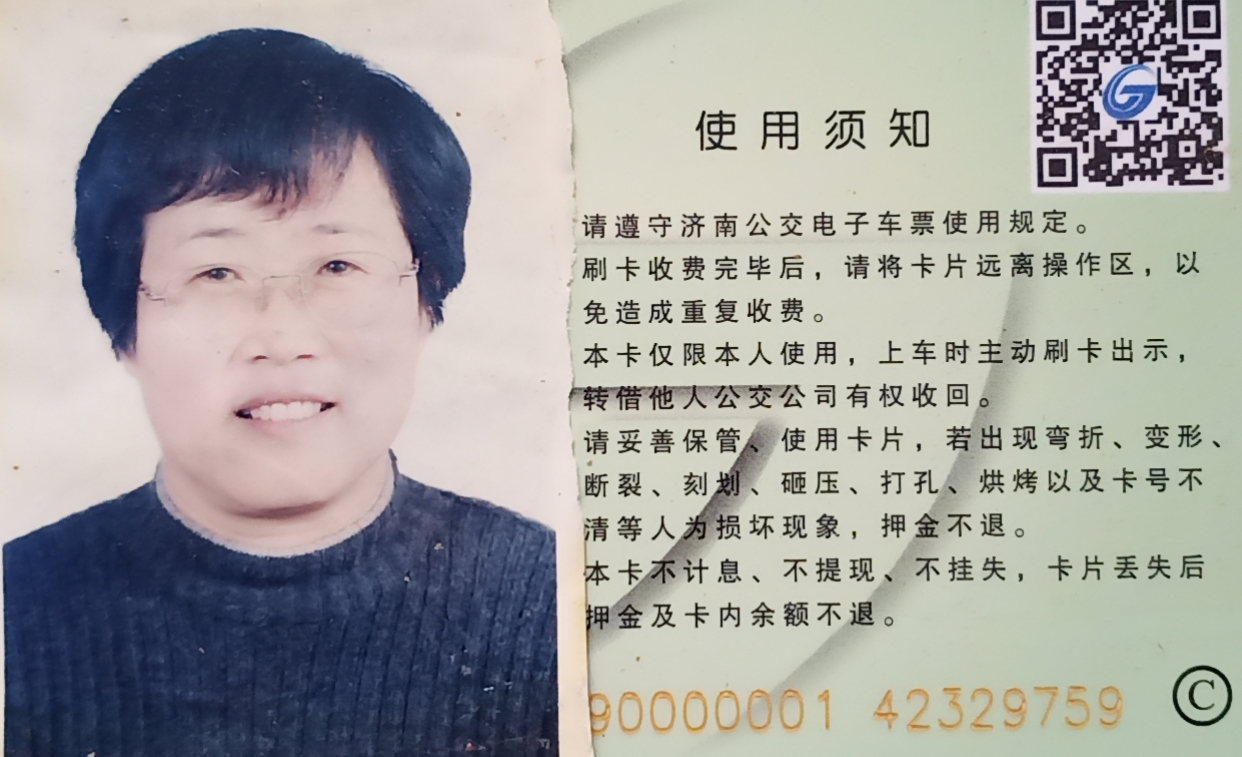 使用须知
请遵守济南公交电子车票使用规定。
刷卡收费完毕后，请将卡片远离操作区，以
免造成重复收费。
本卡仅限本人使用，上车时主动刷卡出示，
转借他人公交公司有权收回。
请妥善保管、使用卡片，若出现弯折、变形、
断裂、刻划、砸压、打孔、烘烤以及卡号不
清等人为损坏现象，押金不退。
本卡不计息、不提现、不挂失，卡片丢失后
押金及卡内余额不退。
90000001 42329759 Ⓒ